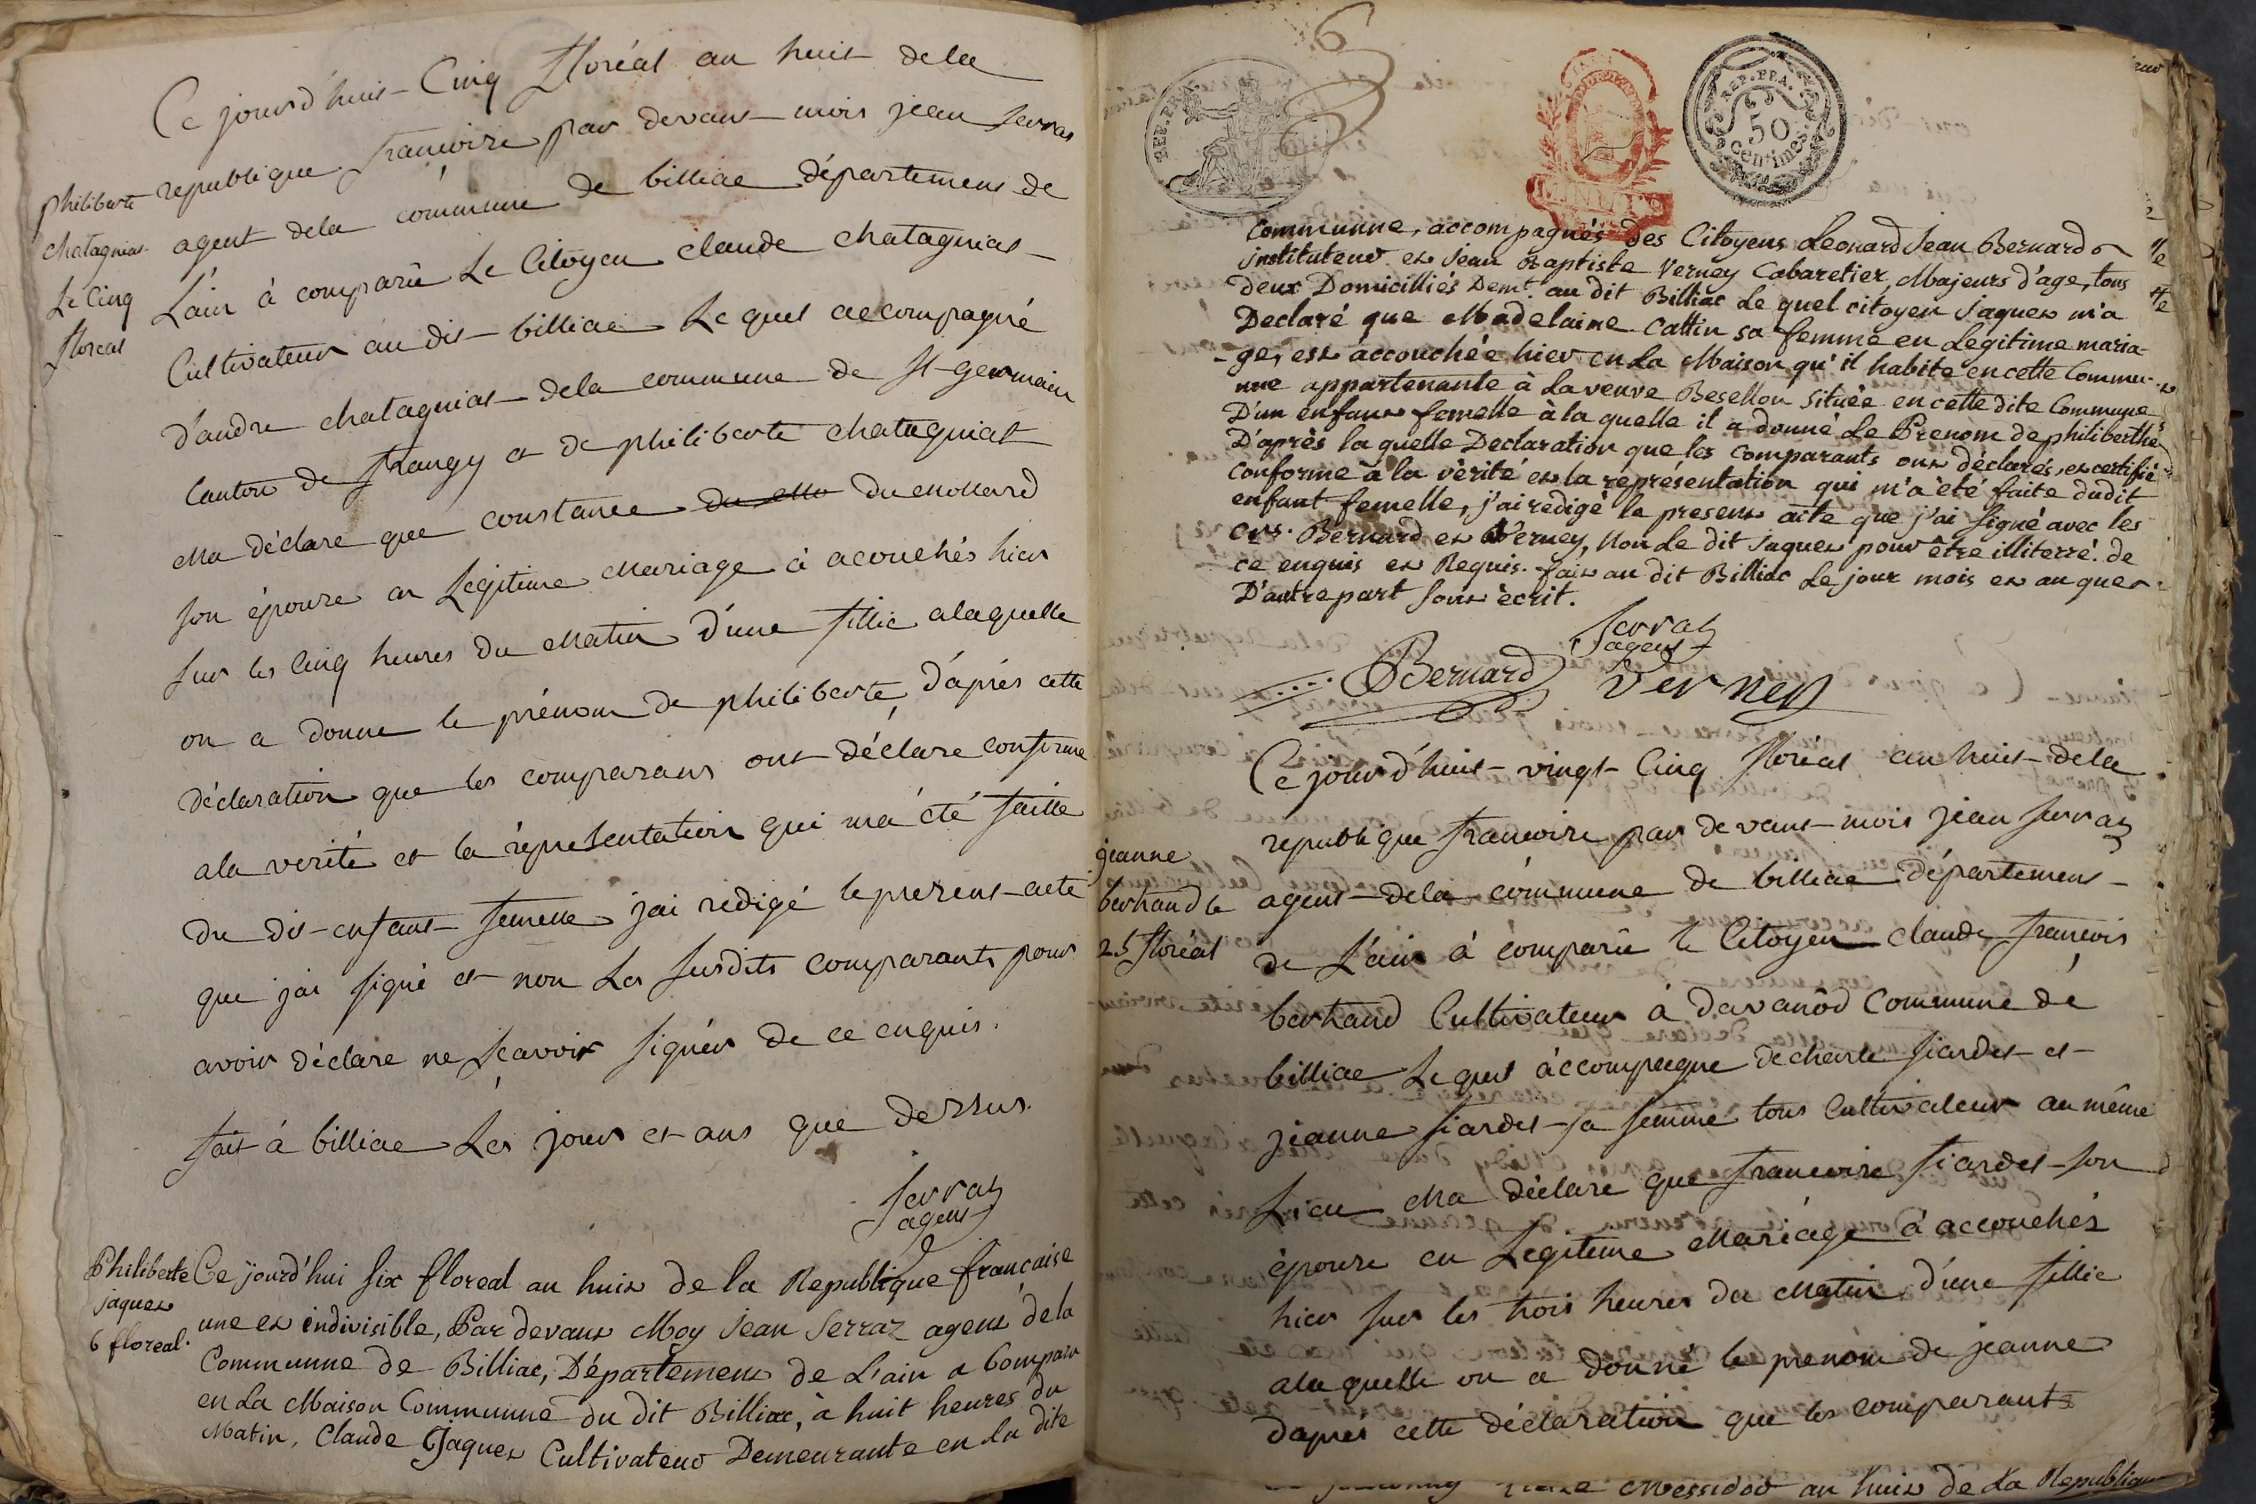 Ce jourd'huit Cinq floréal an huit dela
republique francoise par devant mois jean serraz
agent dela cómmune de billiae département de
L'ain à comparû Le Citoyen claude chatagniat
Cultivateur au dit billiae Le quel accompagné
d'andre chatagniat dela commune de st germain
Canton de frangy et de philiberte chatagniat
Ma déclare que constance du mo du mollard
son épouse en Legitime Mariage à acouchés hier
sur les Cinq heures du Matin d'une fillie alaquelle
on a donne le prénom de philiberte, d'après cette
déclaration que les comparans ont déclare conforme
ala verité et la réprésentation qui m'a été faitte
du dit enfant femelle jai rédigé le present acte
que jai signé et non Les susdits comparants pour
avoir déclare ne sçavoir signér de ce enquis.
fait à billiae Les jour et ans que dessus.
Serraz
agent
philiberte
chatagniat
Le Cinq
floreal
Philiberte
jaques
6 floreal.
Ce jourd'hui six floreal an huit de la Republique française
une et indivisible, Par devant Moy Jean Serraz agent de la
Communne de Billiac, Département de L'ain a Comparu
en La Maison Communne du dit Billiac, à huit heures du
Matin, Claude Jaques Cultivateur Demeurante en la dite
REP. FRA.
REP. FRA.
50
Centimes
Communne, accompagnés des Citoyens Leonard Jean Bernard
instituteur et Jean Baptiste Verney Cabaretier, Majeurs d'age, tous
deux Domicilliés Demt. au dit Billiac Le quel citoyen Jaques m'a
Declaré que Madelaine Cattin sa femme en Legitime maria-
-ge, est accouchée hier en La Maison qu'il habite en cette Commu-
nne appartenante à La veuve Besellon Située en cette dite Commune
D'un enfant femelle à la quelle il a donné Le Prenom de philiberthe
D'après la quelle Declaration que les Comparants ont déclarés, et certifié
Conforme à la vèrité et la représentation qui m'a été faite dudit
enfant femelle, j'ai redigé le present acte que j'ai Signé avec les
Cns. Bernard et Verney, Non Le dit Jaques pour être illiterré. de
ce enquis et Requis. fait au dit Billiac Le jour mois et an que
D'autre part sont écrit.
Serraz
agent
Bernard Verney
Ce jourd'huit vingt Cinq floréal an huit dela
republique francoise par devant mois jean serraz
agent dela cómmune de billiae département
de L'ain à comparû le Citoyen claude francois
berthand Cultivateur à davanôd Commune de
billiae Le quel àccompagne de charle siardet et
jeanne siardet sa femme tous Cultivateur au même
Lieu Ma déclare que francoise siardet son
épouse en Legitime Mariage à accouchés
hier sur les trois heures du Matin d'une fillie
ala quelle on a donné le prenom de jeanne
dapres cette déclaration que les comparants
jeanne
berthand le
25 floréal
Messidor an huit de La Republique